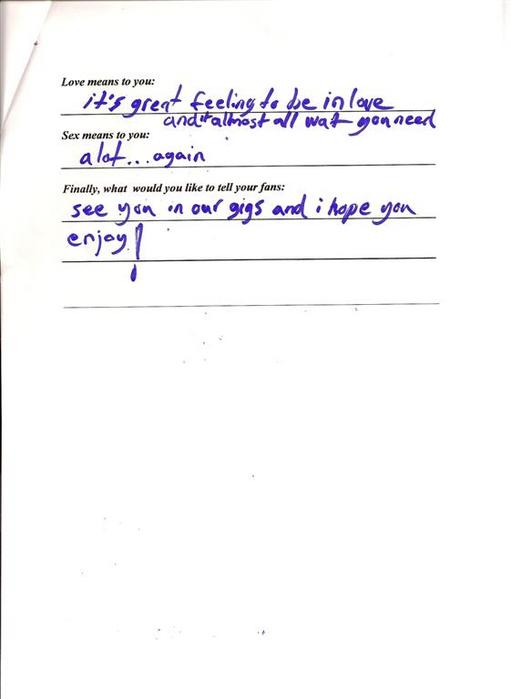 Love means to you:
it's great feeling to be in love
and it almost all wat you need
Sex means to you:
a lot... again
Finally, what would you like to tell your fans:
see you in our gigs and i hope you
enjoy!